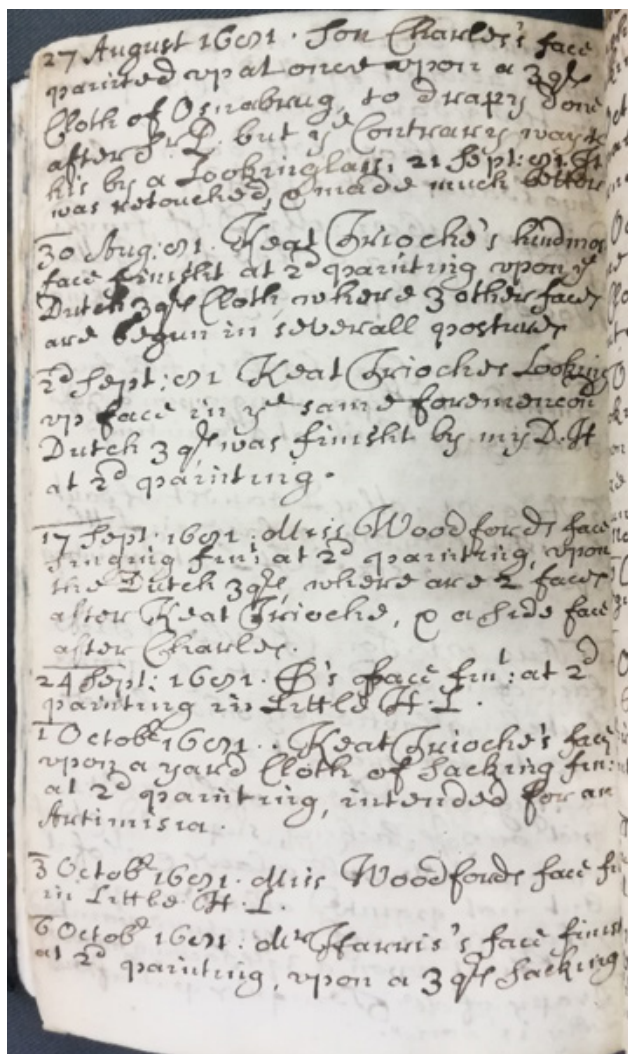 27 August 1681. Son Charles's face
painted up at once upon a 3 qrs
Cloth of Osnabrug, to drapy done
after Sr. P.L. but ye Contrary way to
his by a Lookinglass, 21 Sept: 81. It
was retouched, & made much better
30 Aug: 81. Keat Trioche's hindmos
face finisht at 2d painting upon ye
Dutch 3 qrs Cloth, where 3 other faces
are begun in severall postures
2d Sept: 81 Keat Trioches Looking
up face in ye same foremencon
Dutch 3 qrs was finisht by my D. H
at 2d painting.
17 Sept. 1681. Miss Woodfords face
singing fin: at 2d painting, upon
the Dutch 3 qrs, where are 2 faces
after Keat Trioche, & a side face
after Charles.
24 Sept: 1681. face fin: at 2d
painting in Little H: L.
1 Octobr 1681.. Keat Trioche's face
upon a yard Cloth of sacking fin:
at 2d painting, intended for an
Artimisia.
3 Octobr 1681. Miss Woodfords face fi
in Little H: L.
6 Octobr 1681. Mr Harris's face finish
at 2d painting, upon a 3 qrs sacking